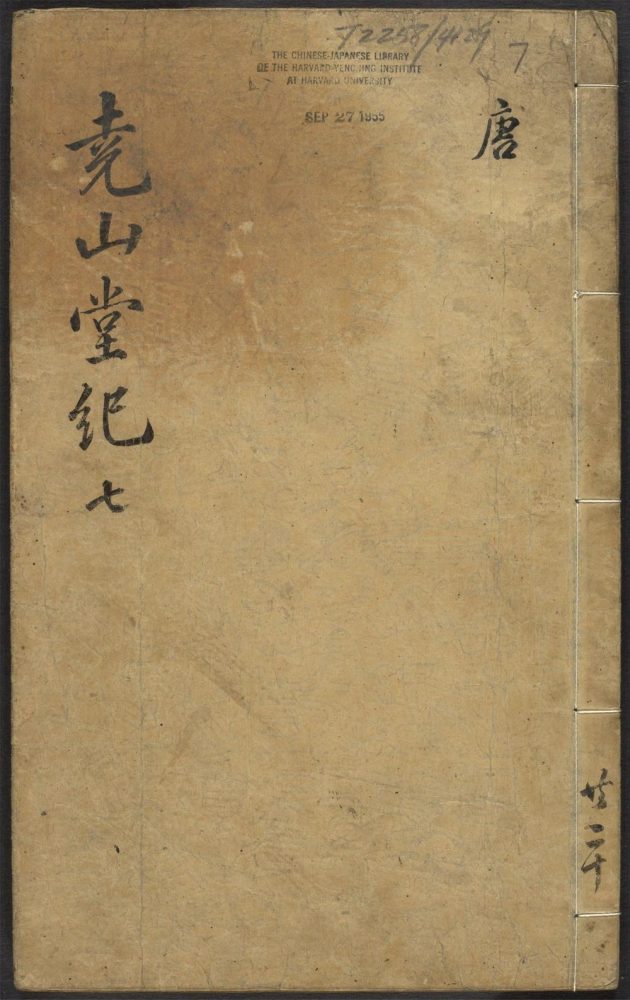 T2258/4129 7
THE CHINESE-JAPANESE LIBRARY
OF THE HARVARD-YENCHING INSTITUTE
AT HARVARD UNIVERSITY
SEP 27 1955
唐
堯山堂紀 七
共二十